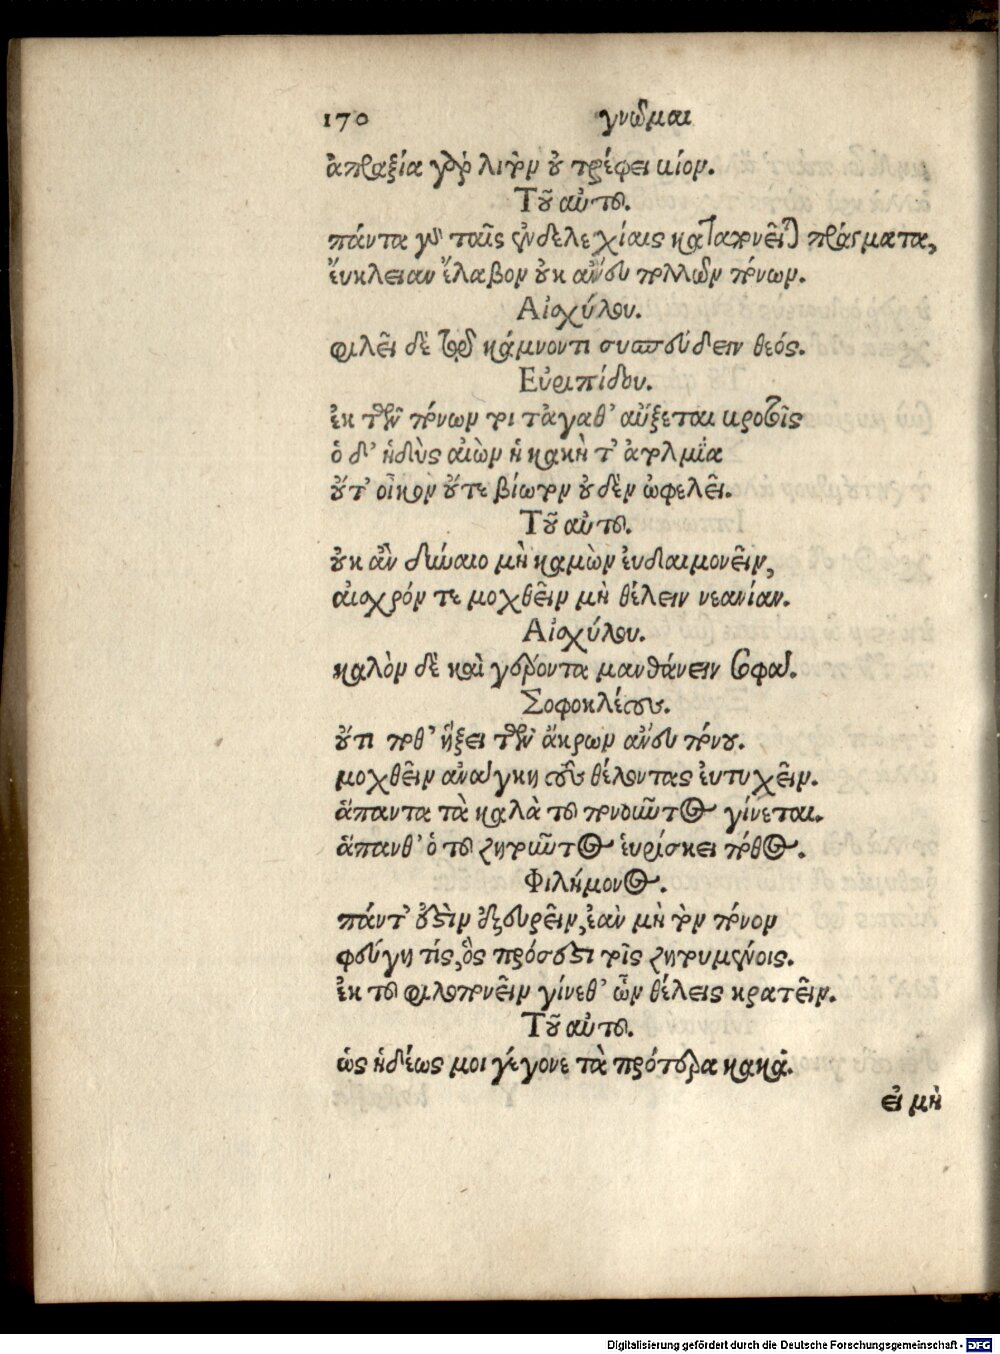 170 γνῶμαι
ἀπραξία γὰρ λιτὸν οὐ τρέφει βίον.
Τοῦ αὐτοῦ.
πάντα γὰρ ταῖς ἐνδελεχίαις καταπονεῖται πράγματα,
εὔκλειαν ἔλαβον οὐκ ἄνευ πολλῶν πόνων.
Αἰσχύλου.
φιλεῖ δὲ τῷ κάμνοντι συσπεύδειν θεός.
Εὐριπίδου.
ἐκ τῶν πόνων τοι τἀγάθ' αὔξεται βροτοῖς
ὁ δ' ἡδὺς αἰὼν ἡ κακὴ τ' ἀτολμία
οὔτ' οἶκον οὔτε βίοτον οὐδὲν ὠφελεῖ.
Τοῦ αὐτοῦ.
οὐκ ἂν δύναιο μὴ καμὼν εὐδαιμονεῖν,
αἰσχρόν τε μοχθεῖν μὴ θέλειν νεανίαν.
Αἰσχύλου.
καλὸν δὲ καὶ γέροντα μανθάνειν σοφά.
Σοφοκλέους.
οὔτι ποθ' ἥξει τῶν ἄκρων ἄνευ πόνου.
μοχθεῖν ἀνάγκη τοὺς θέλοντας εὐτυχεῖν.
ἅπαντα τὰ καλὰ τοῦ πονοῦντος γίνεται.
ἅπανθ' ὁ τοῦ ζητοῦντος εὑρίσκει πόθος.
Φιλήμονος.
πάντ' ἔστιν ἐξευρεῖν, ἐὰν μὴ τὸν πόνον
φεύγῃ τίς, ὃς πρόσεστι τοῖς ζητουμένοις.
ἐκ τοῦ φιλοπονεῖν γίνεθ' ὧν θέλεις κρατεῖν.
Τοῦ αὐτοῦ.
ὡς ἡδέως μοι γέγονε τὰ πρότερα κακά.
εἰ μὴ
Digitalisierung gefördert durch die Deutsche Forschungsgemeinschaft - DFG